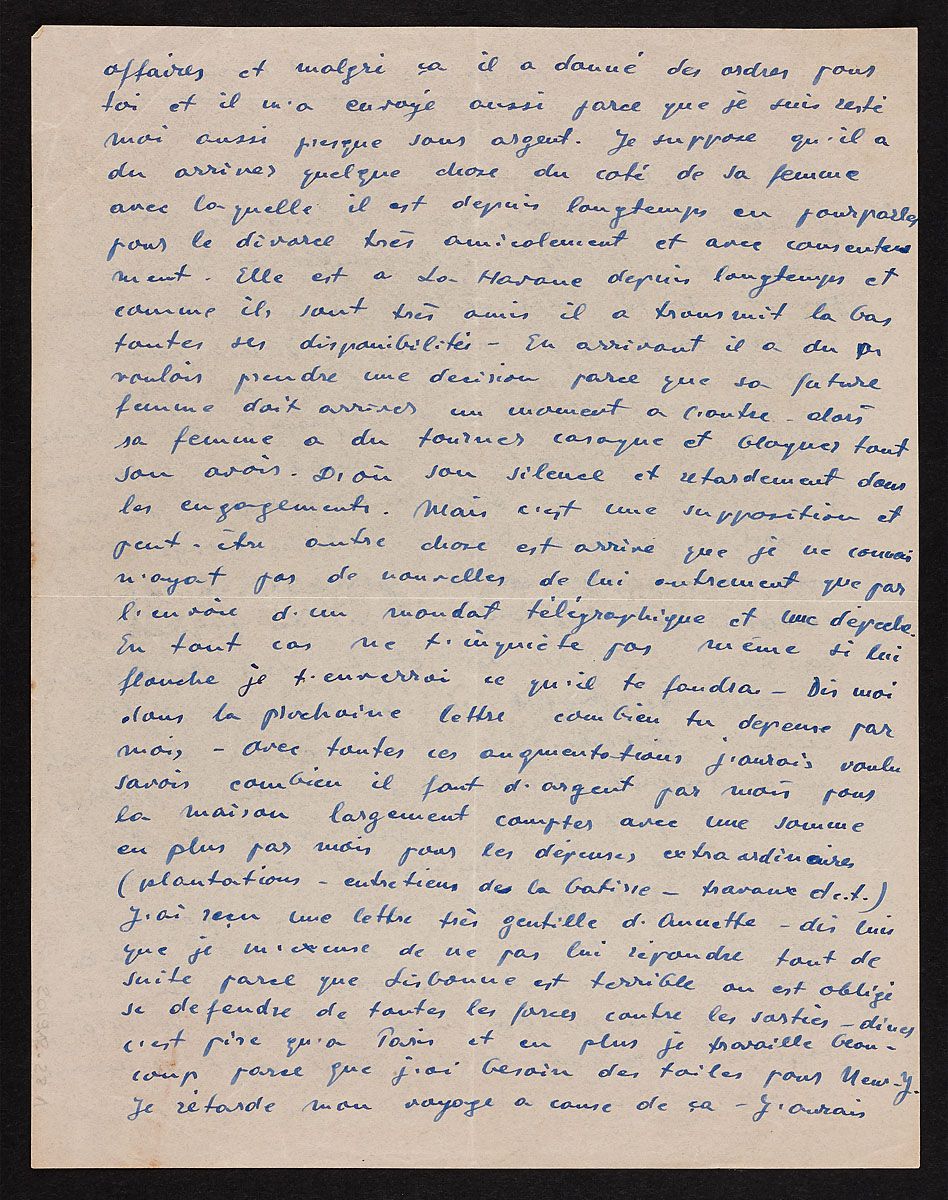 affaires et malgré ça il a donné des ordres pour
toi et il m'a envoyé aussi parce que je suis resté
moi aussi presque sans argent. Je suppose qu'il a
du arriver quelque chose du coté de sa femme
avec laquelle il est depuis longtemps en pourparlers
pour le divorce très amicalement et avec consente
ment. Elle est a La Havane depuis longtemps et
comme ils sont très amis il a transmit la bas
toutes ses disponibilités - En arrivant il a du
vouloir prendre une decision parce que sa future
femme doit arriver un moment a l'autre - alors
sa femme a du tourner casaque et bloquer tout
son avoir. D'où son silence et retardement dans
les engagements. Mais c'est une supposition et
peut-être autre chose est arrivé que je ne connais
n'ayat pas de nouvelles de lui autrement que par
l'envoie d'un mandat télégraphique et une dépeche.
En tout cas ne t'inquiète pas même si lui
flanche je t'enverrai ce qu'il te faudra - Dis moi
dans la prochaine lettre combien tu depense par
mois - avec toutes ces augmentations j'aurais voulu
savoir combien il faut d'argent par mois pour
la maison largement compter avec une somme
en plus par mois pour les dépenses extraordinaires
(plantations - entretiens de la batisse - travaux etc.t.)
J'ai reçu une lettre très gentille d'Annette - dis luis
que je m'excuse de ne pas lui répondre tout de
suite parce que Lisbonne est terrible on est obligé
se defendre de toutes les forces contre les sorties - diners
c'est pire qu'a Paris et en plus je travaille beau-
coup parce que j'ai besoin des toiles pour New-Y.
Je rétarde mon voyage a cause de ça - J'aurais